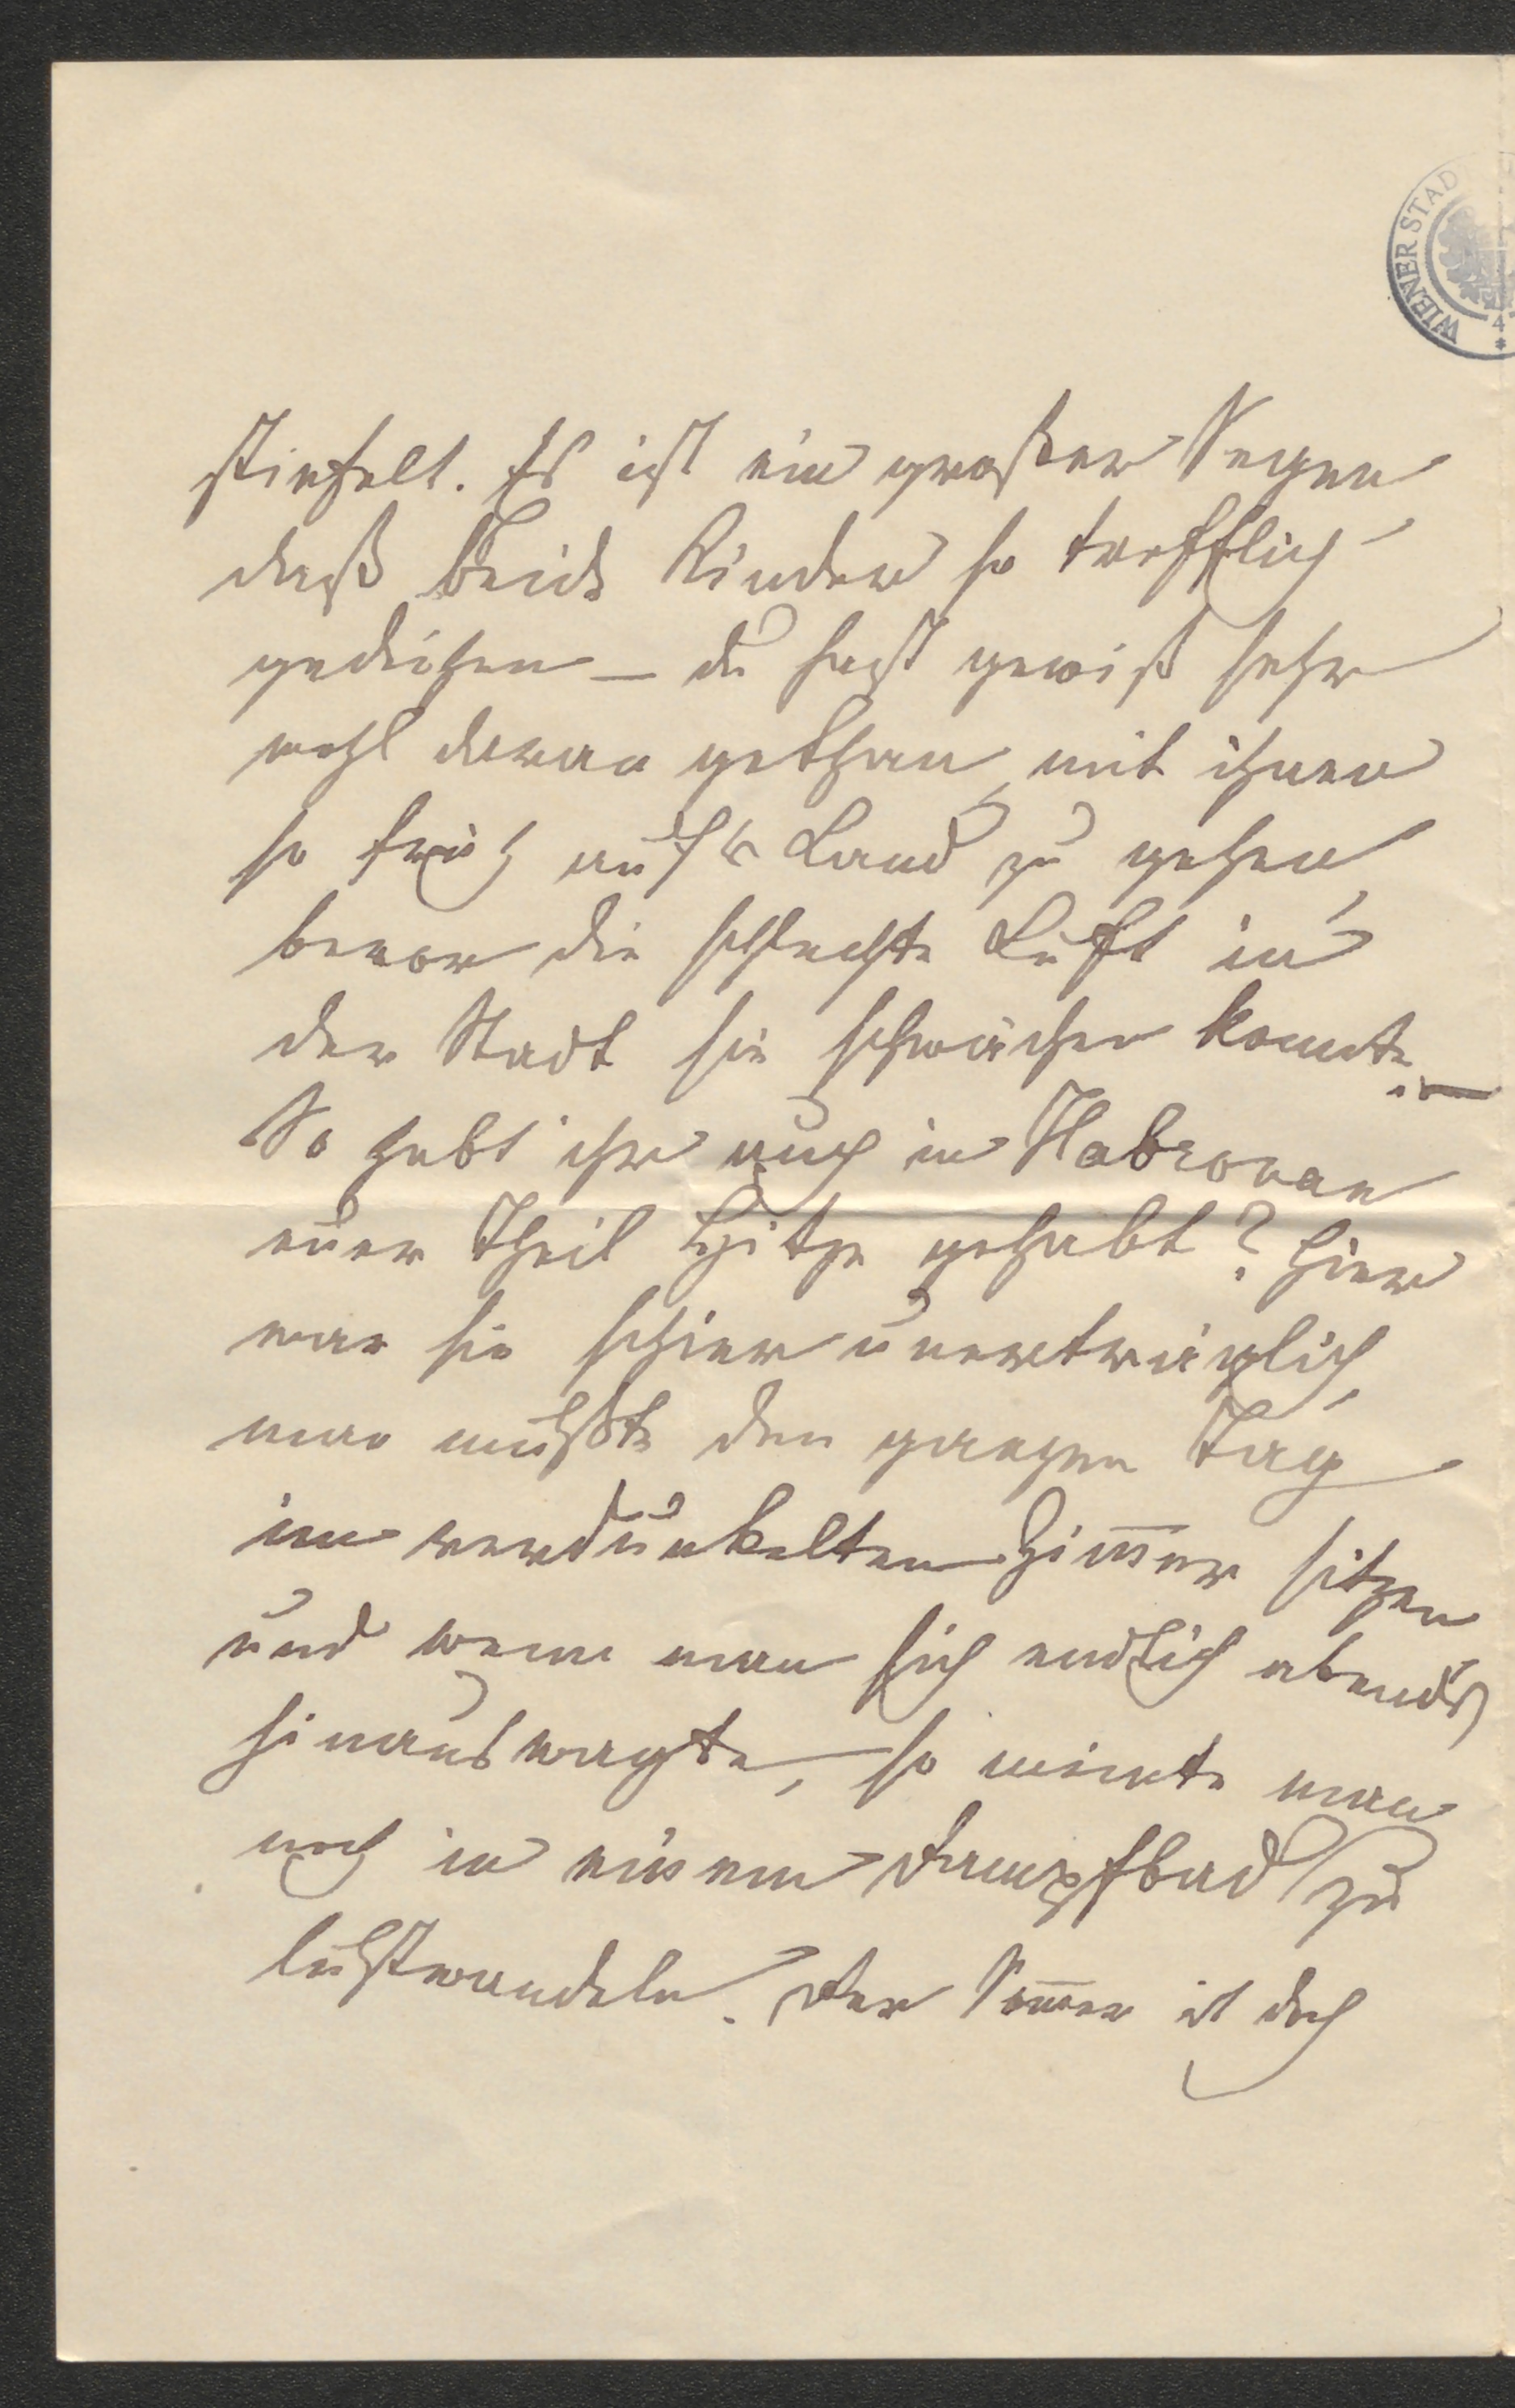 WIENER STAD
4
stiefelt. Es ist ein großer Segen
daß beide Kinder so trefflich
gedeihen – du hast gewiß sehr
wohl daran gethan, mit ihnen
so früh auf's Land zu gehen,
bevor die schlechte Luft in
der Stadt sie schwächen konnte. –
So habt ihr auch in Habrovan
euer Theil Hitze gehabt? Hier
war sie schier unerträglich,
man mußte den ganzen Tag
im verdunkelten Zimmer sitzen
und wenn man sich endlich abends
hinauswagte, so meinte man
noch in einem Dampfbad zu
lustwandeln. Der Sommer ist doch